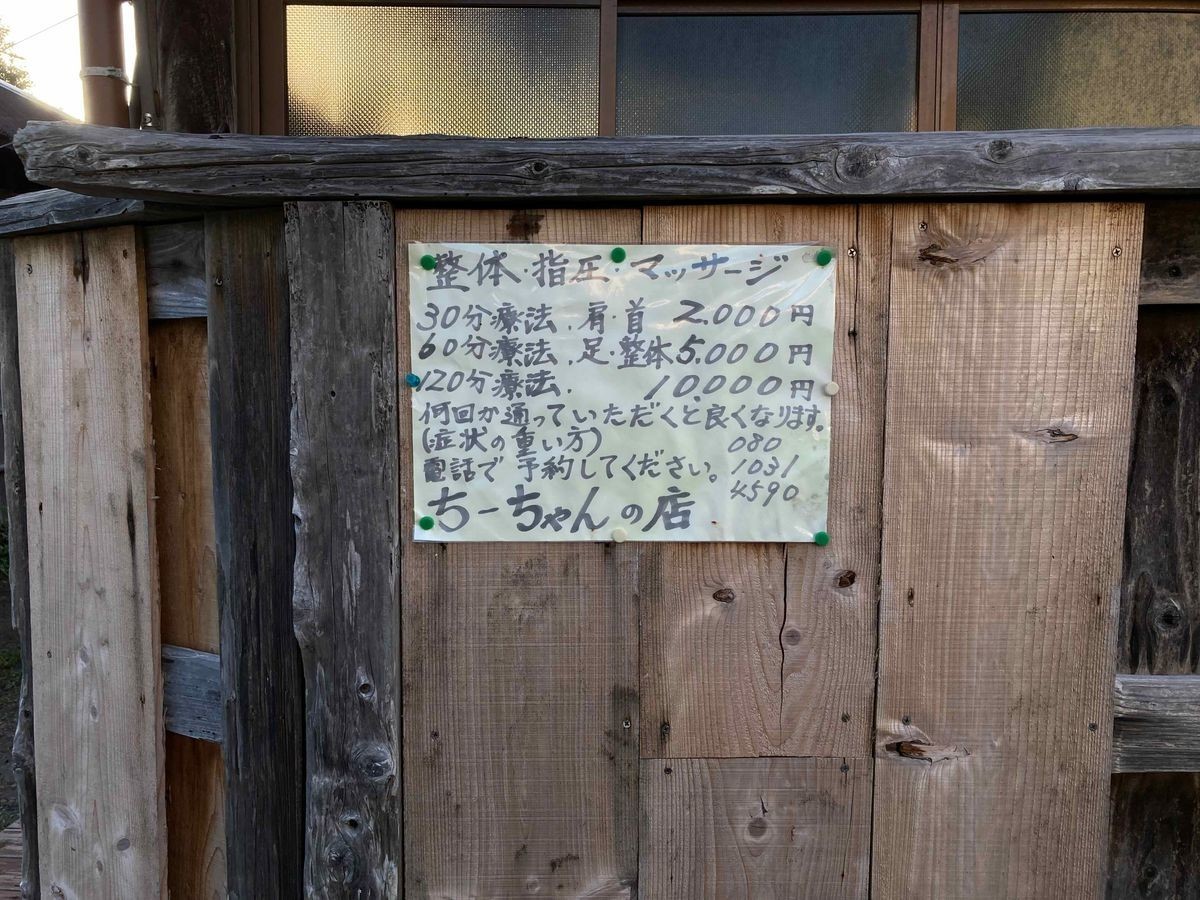 整体・指圧・マッサージ
30分療法.肩・首 2.000円
60分療法.足・整体5.000円
120分療法. 10.000円
何回か通っていただくと良くなります。
(症状の重い方) 080
電話で予約してください。1031
ちーちゃんの店 4590